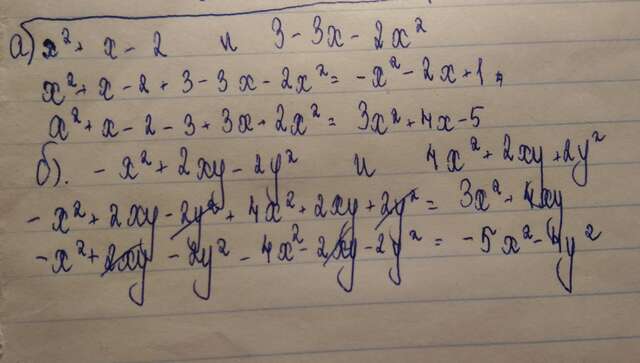 а) x² + x - 2 и 3 - 3x - 2x²
x² + x - 2 + 3 - 3x - 2x² = -x² - 2x + 1
x² + x - 2 - 3 + 3x + 2x² = 3x² + 4x - 5
б). -x² + 2xy - 2y² и 4x² + 2xy + 2y²
-x² + 2xy - 2y² + 4x² + 2xy + 2y² = 3x² + 4xy
-x² + 2xy - 2y² - 4x² - 2xy - 2y² = -5x² - 4y²